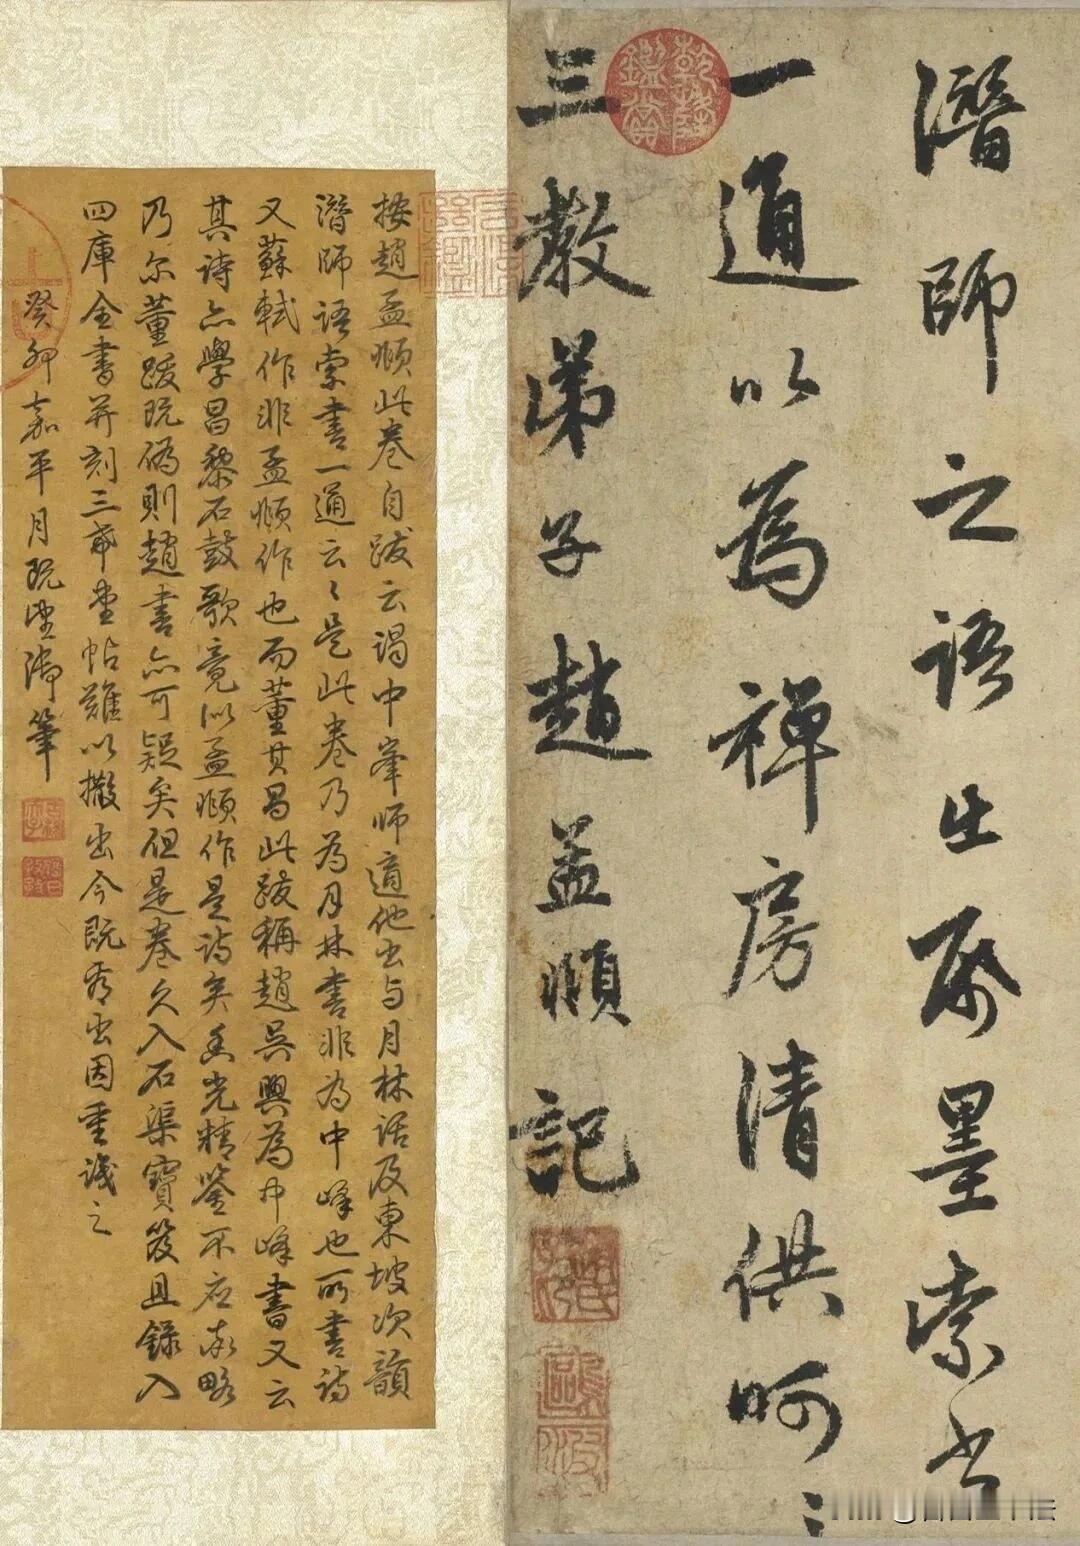 潛師之語出紙墨索書
一通以為禪房清供呵〻
三教弟子趙孟頫記
乾隆鑑賞
按趙孟頫此卷自跋云謁中峯師適他出與月林話及東坡次韻
潛師語索書一通云〻是此卷乃為月林書非為中峰也所書詩
又蘇軾作非孟頫作也而董其昌此跋稱趙吳興為中峰書又云
其詩亦學昌黎石鼓歌竟似孟頫作是詩矣香光精鑒不應率略
乃尔董跋既偽則趙書亦可疑矣但是卷久入石渠寶笈且錄入
四庫全書并刻三希堂帖難以撤出今既看出因重識之
癸卯嘉平月既望御筆